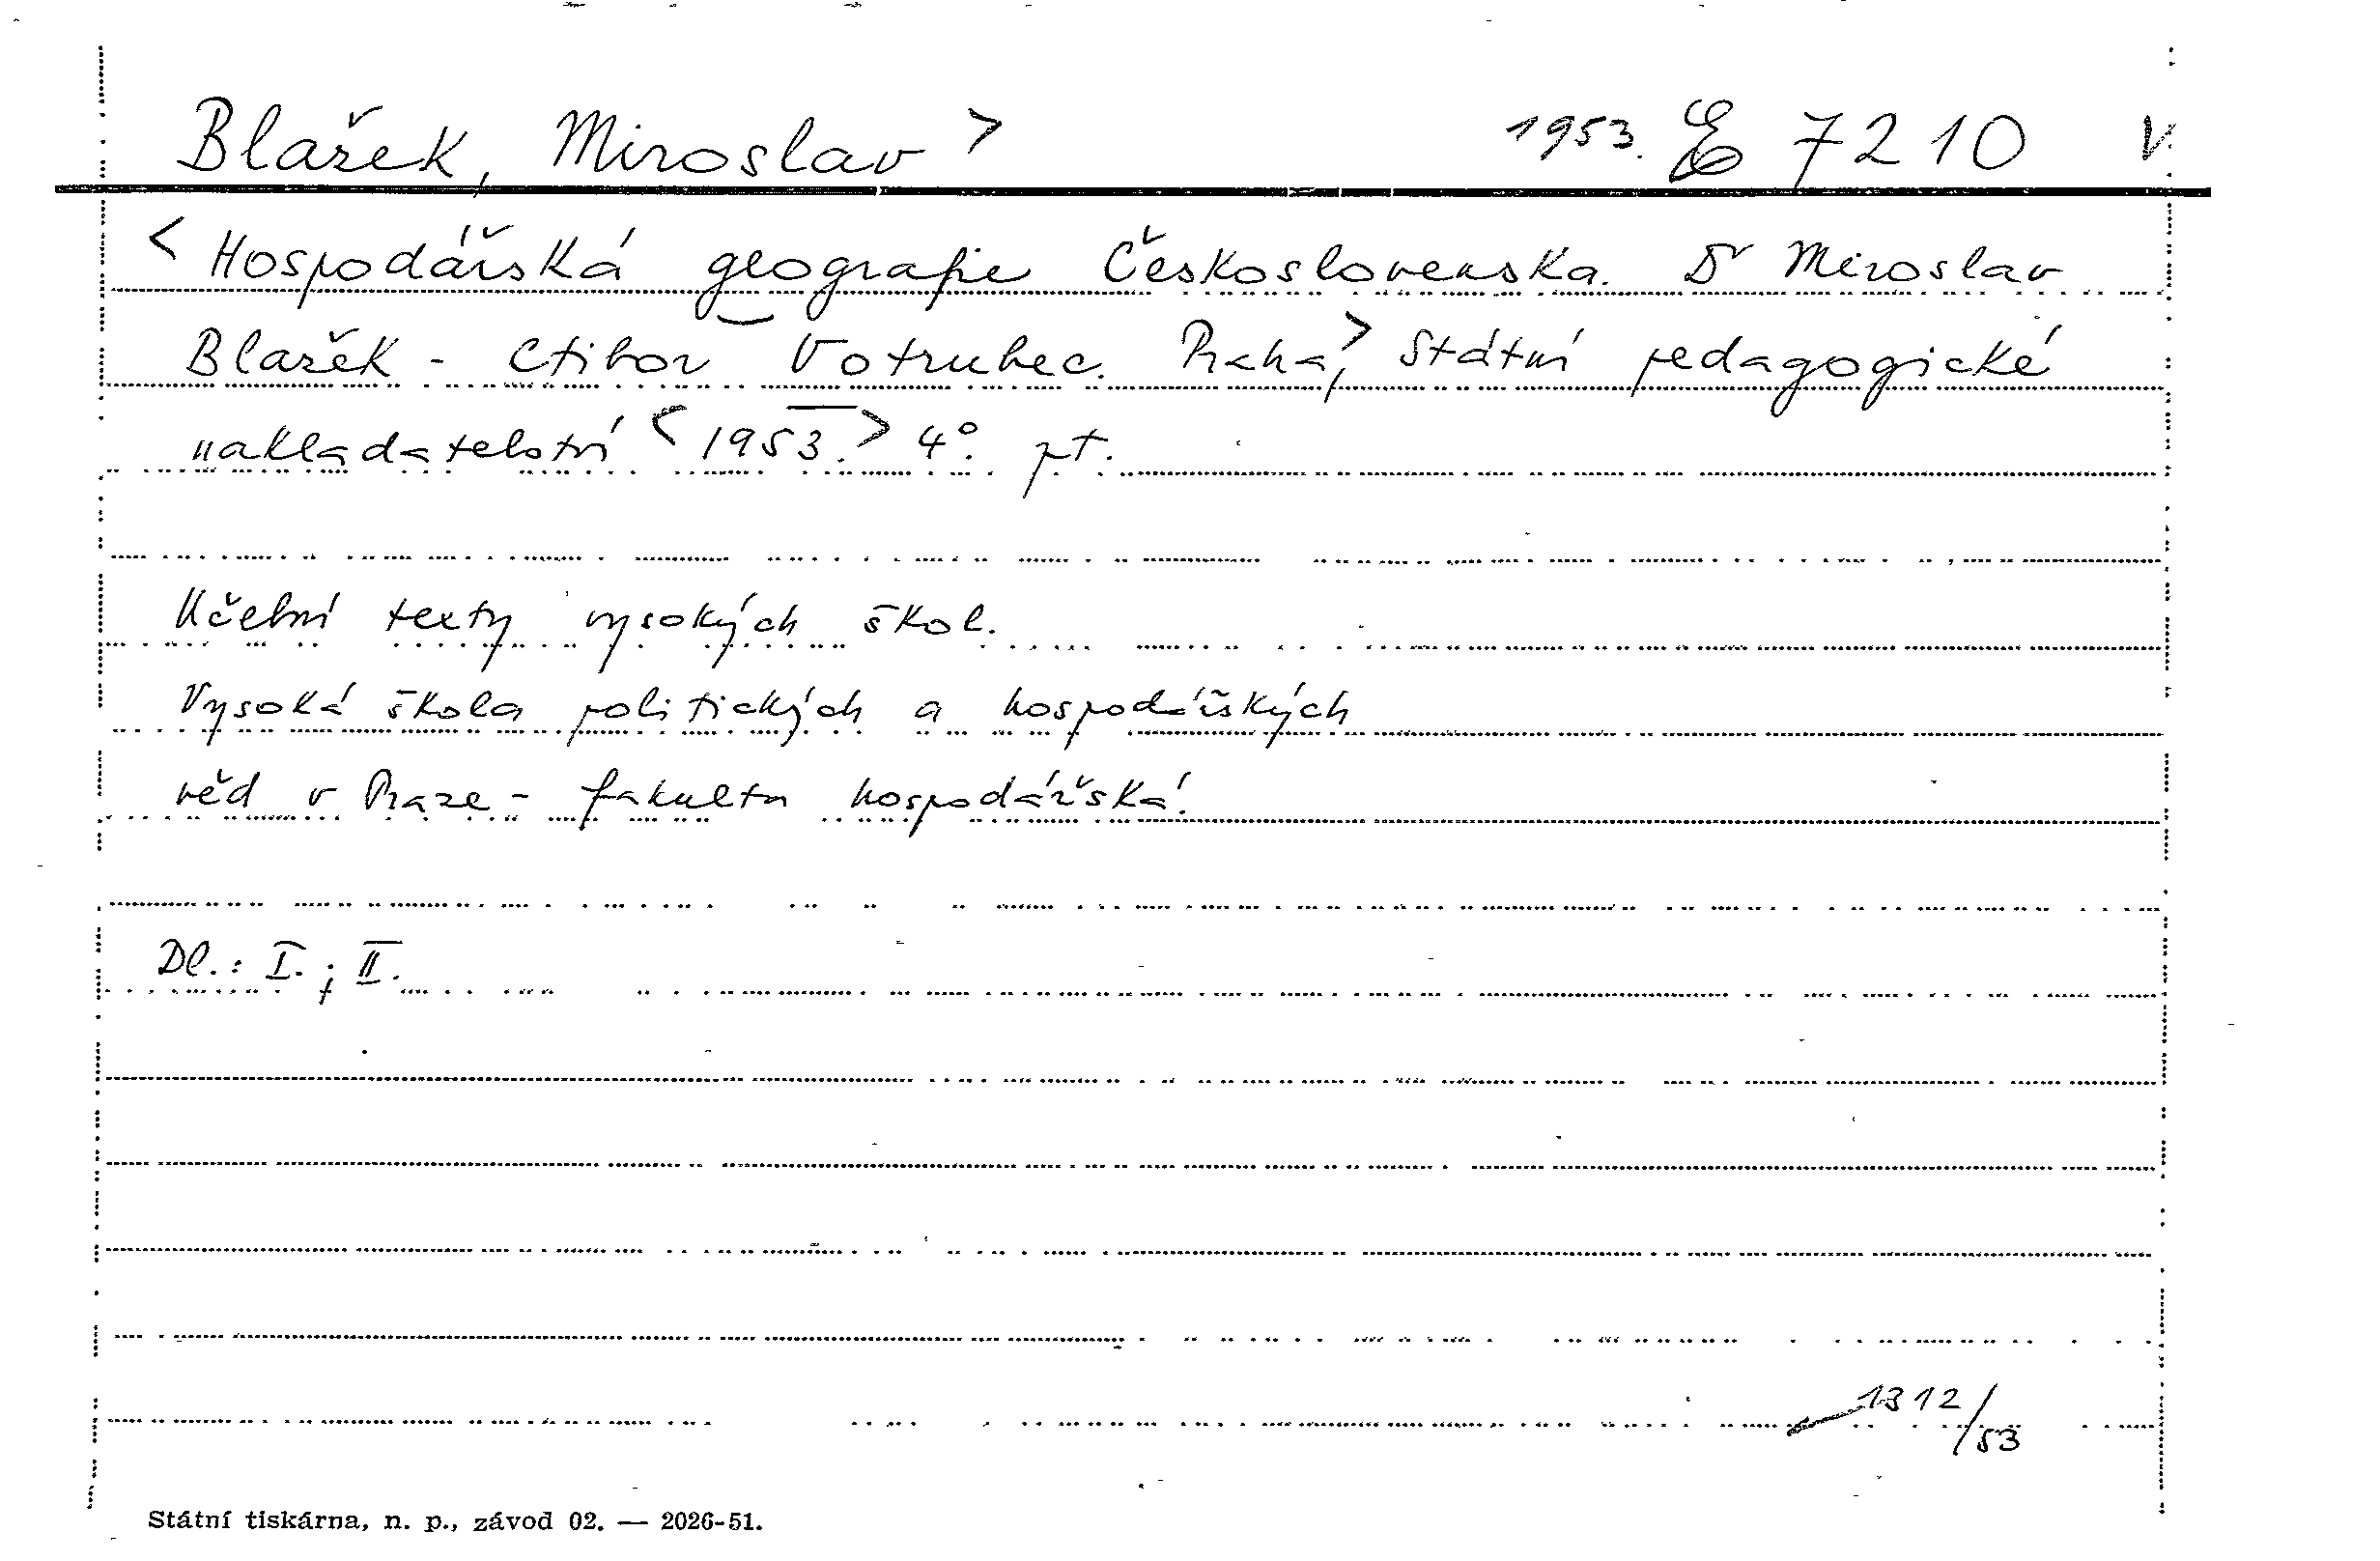 Blažek, Miroslav > 1953. E 7210 V.
< Hospodářská geografie Československa. Dr Miroslav
Blažek - Ctibor Votrubec. Praha,> Státní pedagogické
nakladatelství <1953.> 4°. pt.
Učební texty vysokých škol.
Vysoká škola politických a hospodářských
věd v Praze - fakulta hospodářská.
Dl.: I.; II.
1312/53
Státní tiskárna, n. p., závod 02. — 2026-51.